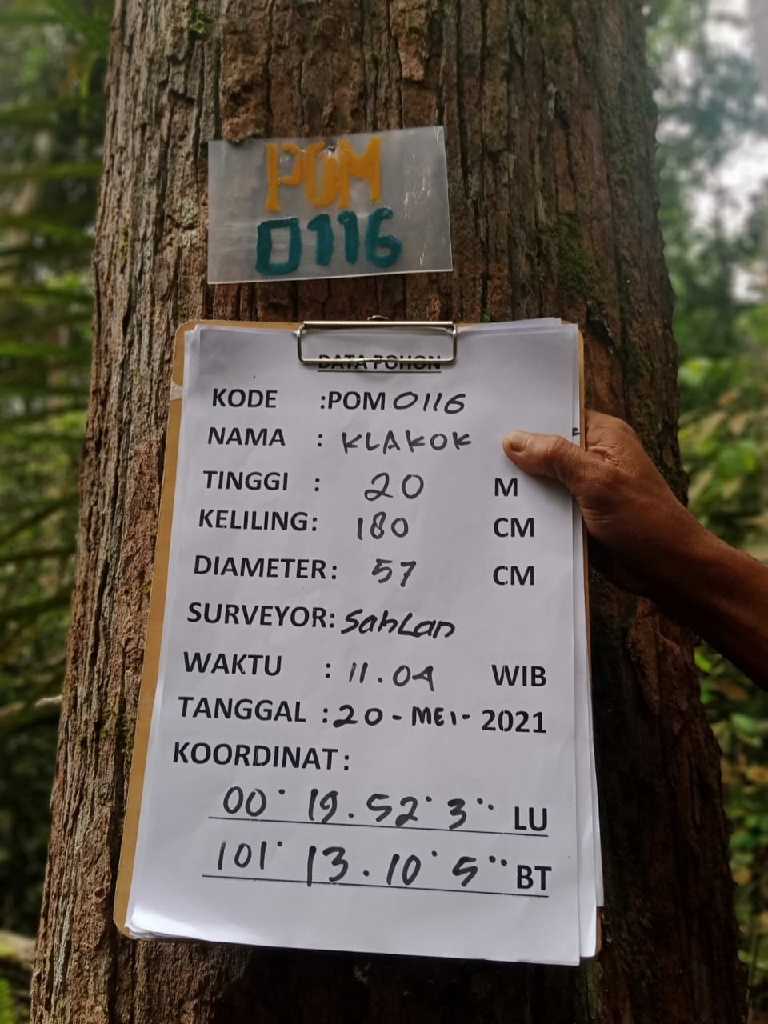 POM
0116
DATA POHON
KODE :POM 0116
NAMA : KLAKOK
TINGGI : 20 M
KELILING: 180 CM
DIAMETER: 57 CM
SURVEYOR: Sahlan
WAKTU : 11.04 WIB
TANGGAL :20-MEI-2021
KOORDINAT:
00° 19.52' 3'' LU
101° 13.10' 5'' BT